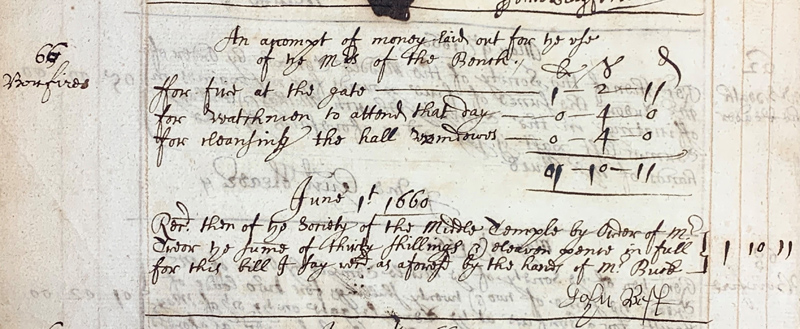 66
Bonfires
An accompt of money laid out for ye use
of ye Mrs of the Bench.
£ s d
ffor fire at the gate — 1 — 2 — 11
for Watchmen to attend that day — 0 — 4 0
for cleansing the hall windowes — 0 4 0
01 — 10 — 11
June 1t 1660
Recd. then of ye Society of the Middle Temple by Order of Mr
Treor ye sume of thirty shillings & eleaven pence in full
for this bill I say recd as aforesd by the hands of Mr Buck
1 10 11
John